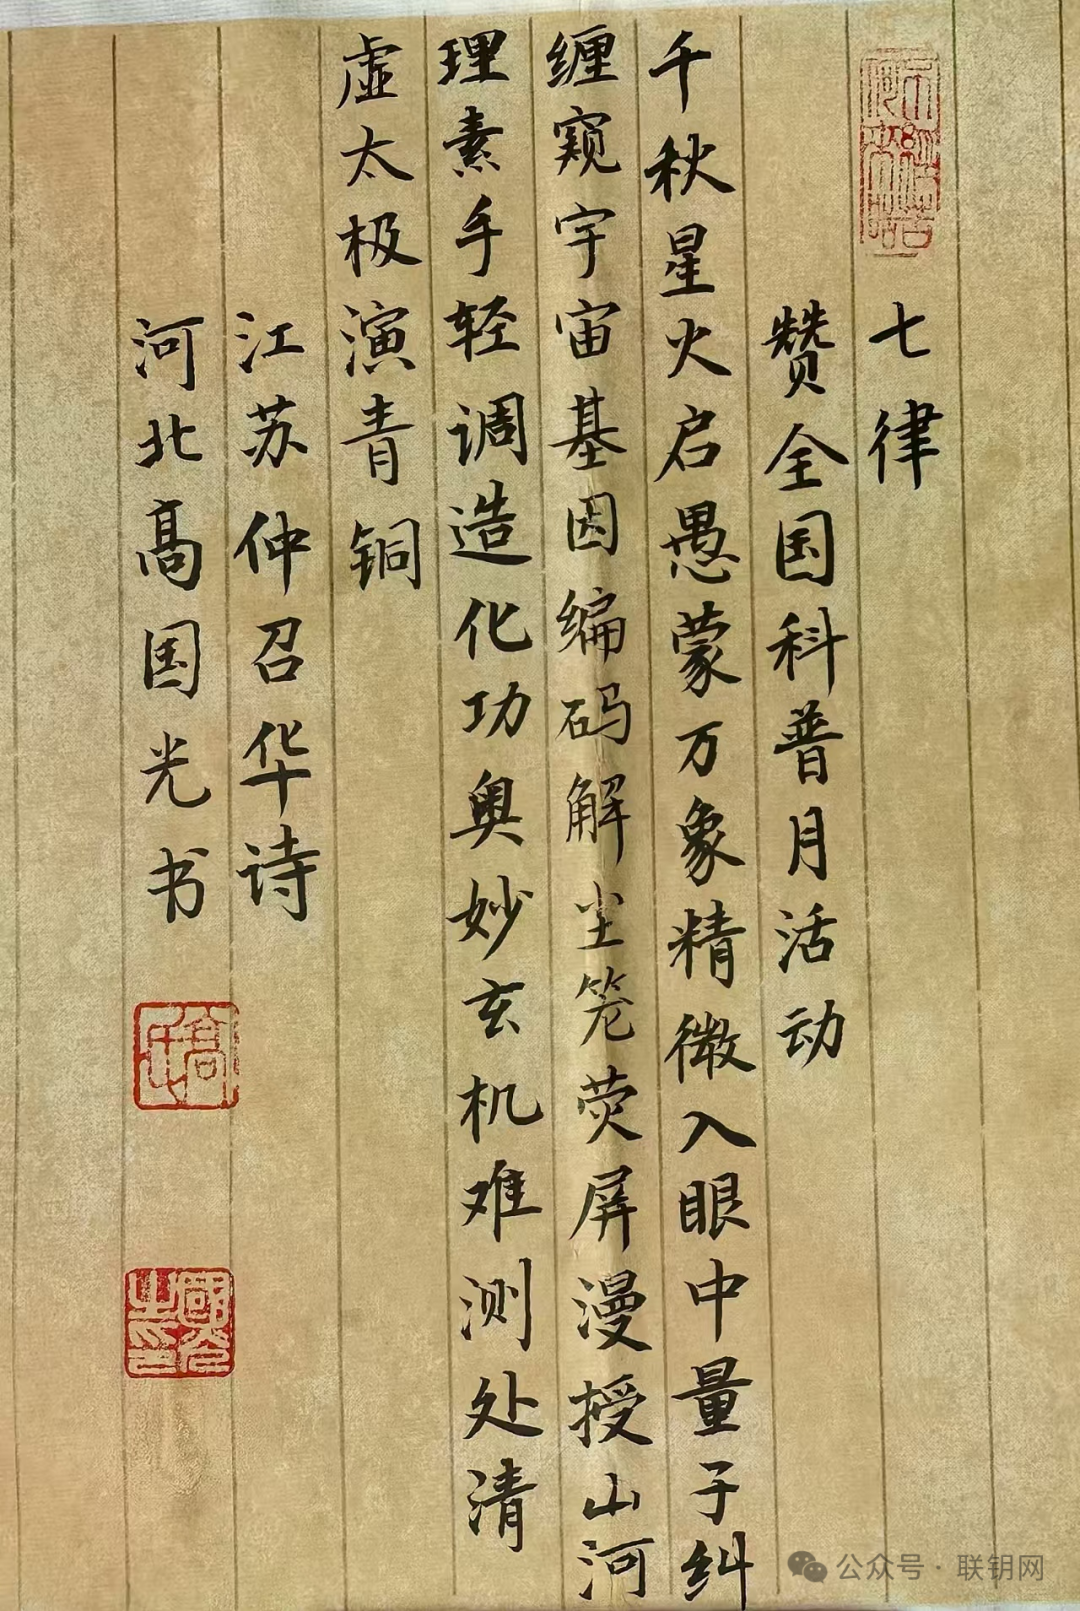 七律
赞全国科普月活动
千秋星火启愚蒙万象精微入眼中量子纠
缠窥宇宙基因编码解尘笼荧屏漫授山河
理素手轻调造化功奥妙玄机难测处清
虚太极演青铜
江苏仲召华诗
河北高国光书
公众号·联钥网